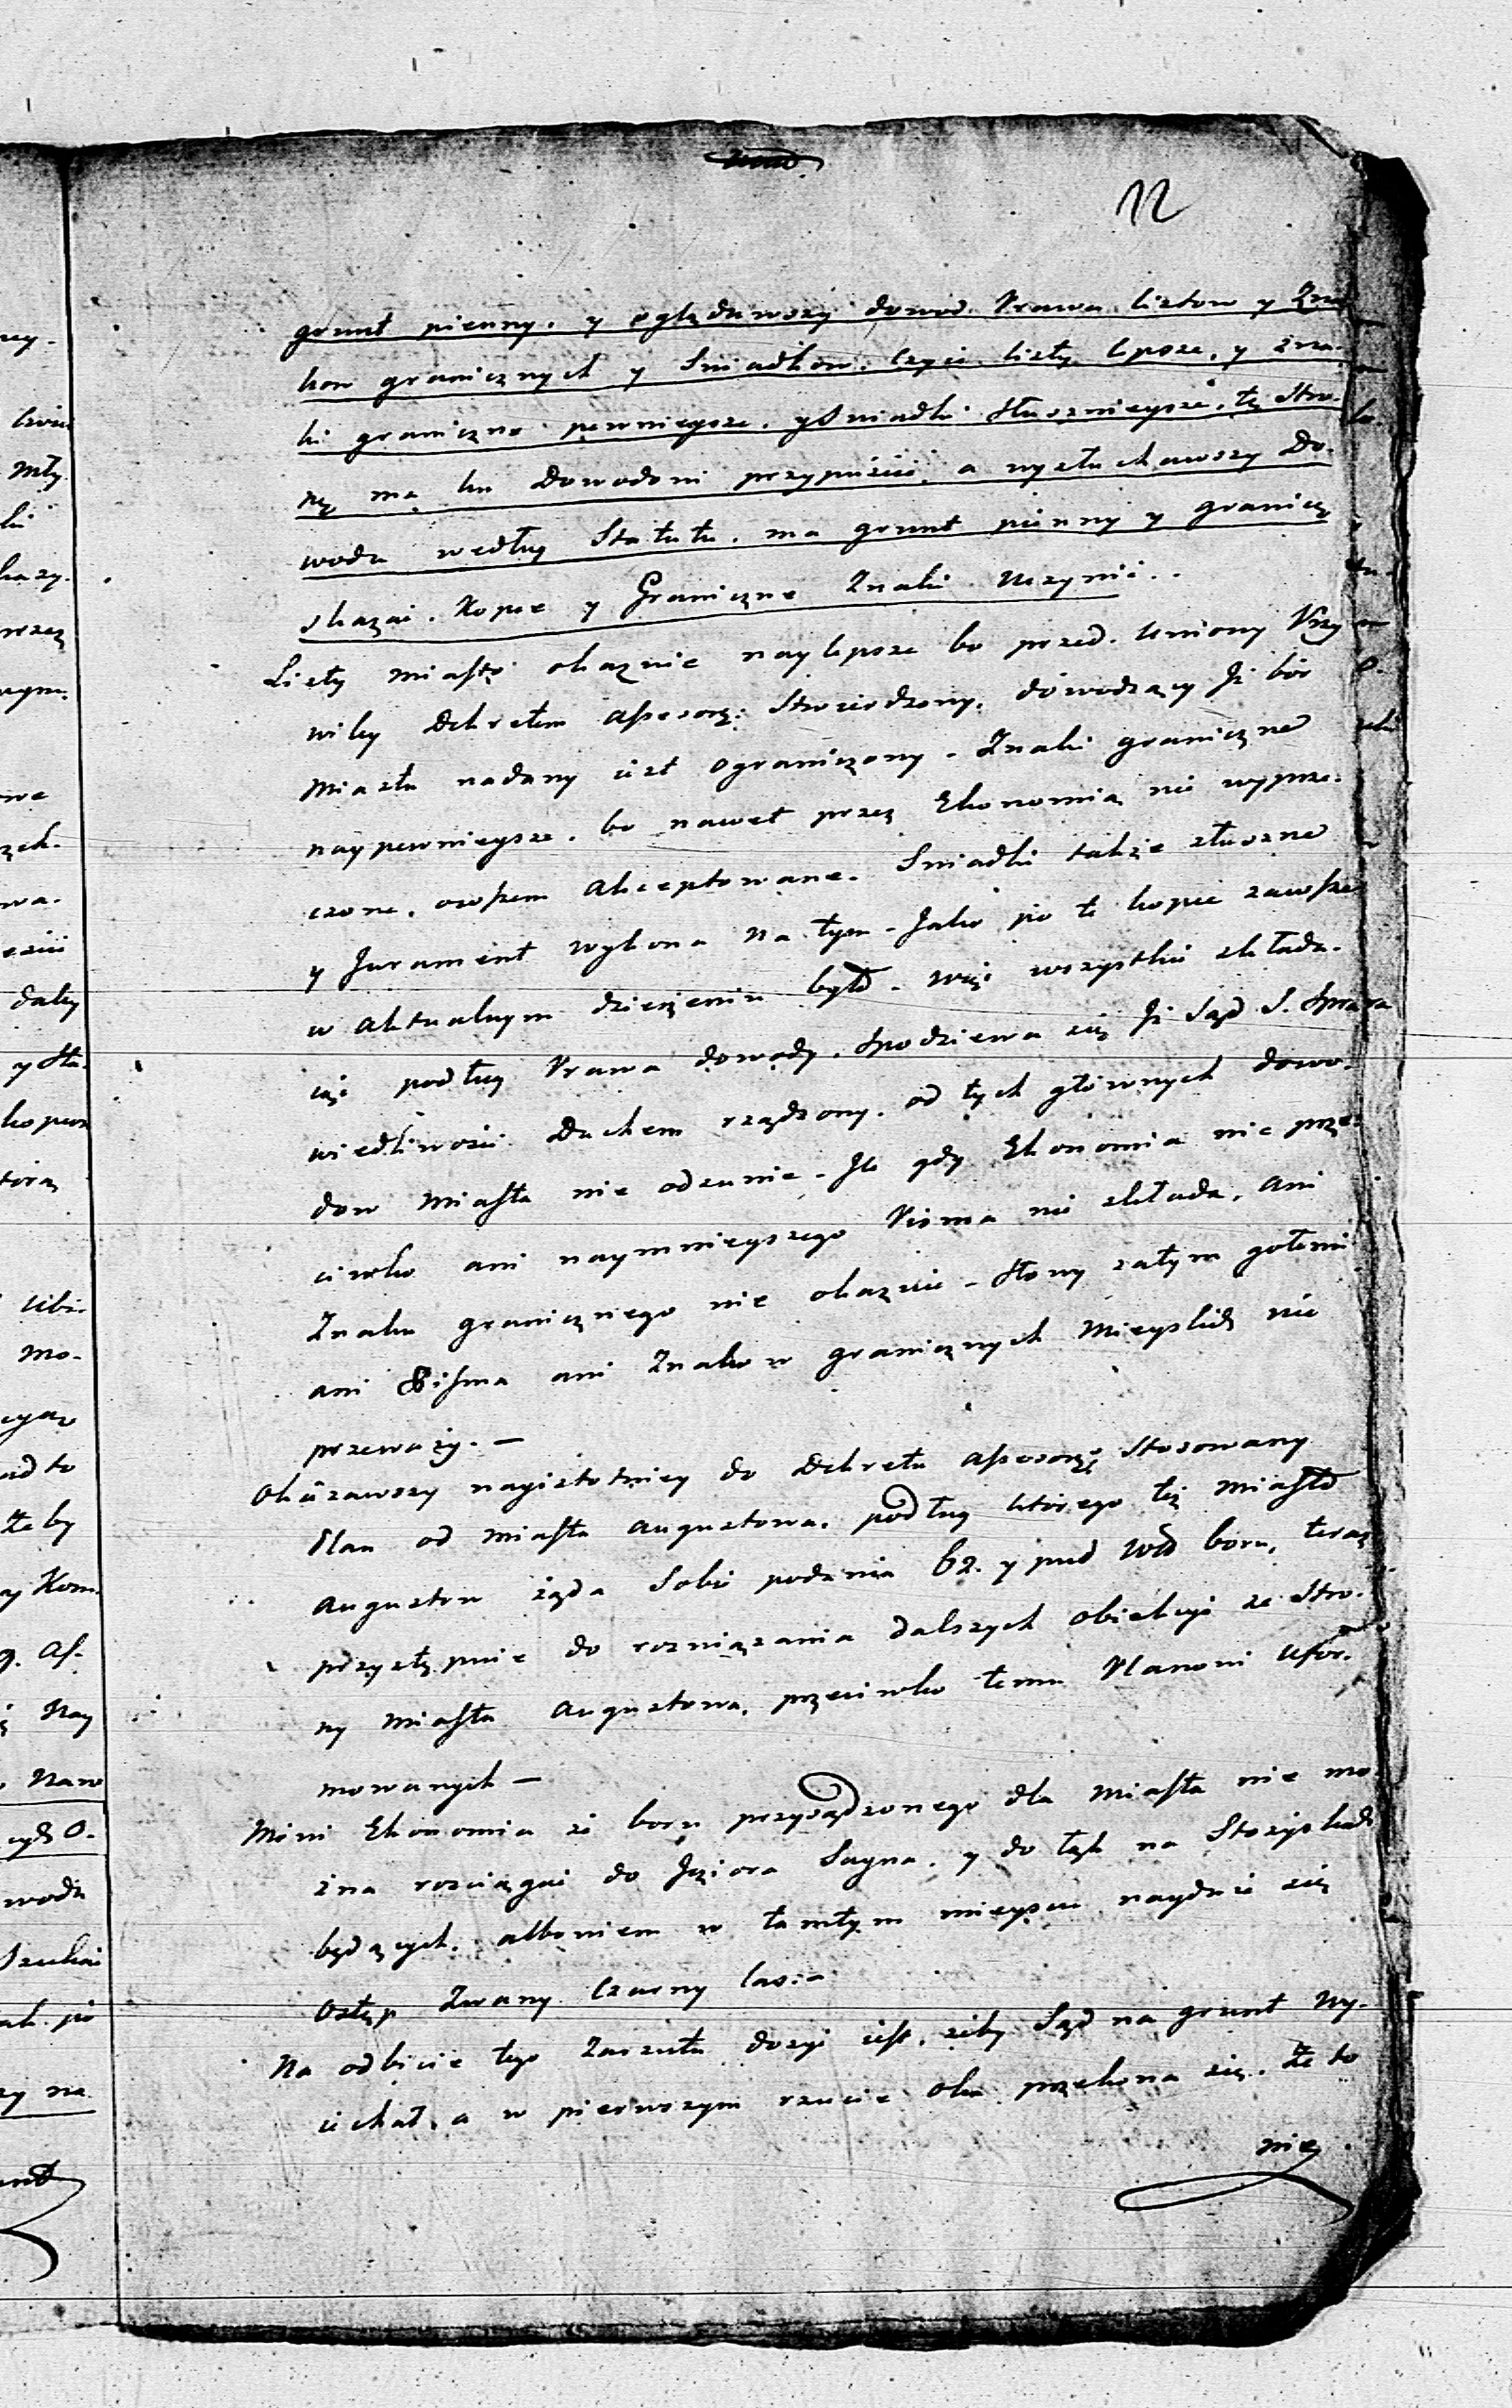 12
grunt pienny. y oglądawszy dowod Prawa listow y Zna
kow granicznych y Swiadkow. Czyie listy lepsze, y zna-
ki graniczne pewnieysze. y Swiadki słusznieysze, tę stro-
nę ma ku Dowodowi przypuścić, a wysłuchawszy Do-
wodu według Statutu. ma grunt pienny y granicę
skazać. Kopce y Graniczne Znaki Uczynić..
Listy miasto okazuie naylepsze bo przed. Uniony Przy
wiley Dekretem assesorŝ: stwierdzony. dowodzący Jż bór
miastu nadany iest ograniczony - Znaki graniczne
naypewnieysze. bo nawet przez Ekonomią nie wyprze-
czone, owszem akceptowane. Swiadki także słuszne
y Jurament wykona na tym - Jako po te kopce zawsze
w aktualnym dzierżeniu było - więc wszystkie składa-
iąc podług Prawa dowody. spodziewa się Jż Sąd S. Sprawi
wiedliwości Duchem rządzony. od tych głównych dowo-
dow miasta nie odsunie - Jle gdy Ekonomia nie prze-
ciwko ani naymnieyszego Pisma nie składa, ani
Znaku granicznego nie okazuie - słowy zatym gołemi
ani Pisma ani Znakow granicznych mieyskich nie
przeważy. —
Okazawszy nayistotniey do Dekretu assesorŝ: stosowany
Plan od miasta augustowa. podług którego też miasto
augustow żąda Sobie podania 62. y puł Włô boru, teraz
przystępuie do rozwiązania dalszych obiekcyi ze stro-
ny miasta augustowa, przeciwko temu Planowi ufor-
mowanych —
Mówi Ekonomia iż boru przysądzonego dla miasta nie mo-
żna rozciągać do Jeziora Sayna. y do łąk na Stożyskach
będących. albowiem w tamtym mieyscu nayduie się
Ostęp Zwany Czarny las: -
Na odbicie tego Zarzutu dosyć iest, żeby Sąd na grunt wy-
iechał, a w pierwszym rzucie oka przekona się. Że to
nie